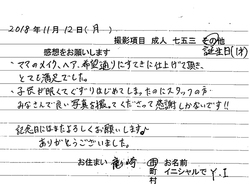 2018年11月12日(月)
撮影項目 成人 七五三 その他
感想をお願いします 誕生日(1才)
・ママのメイク、ヘア、希望通りにすてきに仕上げて頂き、
とても満足でした。
・子供が眠くてぐずりはじめてしまったのにスタッフの方
みなさんで良い写真を撮ってくださって感謝しかないです!!
記念日にはまたよろしくお願いします♪
ありがとうございました。
お住まい 竜崎 町村 お名前 イニシャルで Y.I